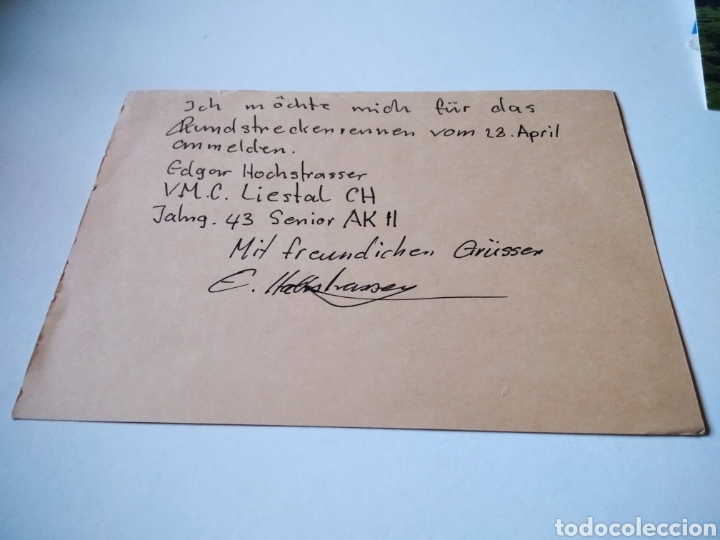 Ich möchte mich für das
Rundstreckenrennen vom 28. April
anmelden.
Edgar Hochstrasser
V.M.C. Liestal CH
Jahrg. 43 Senior AK II
Mit freundlichen Grüssen
E. Hochstrasser
todocoleccion